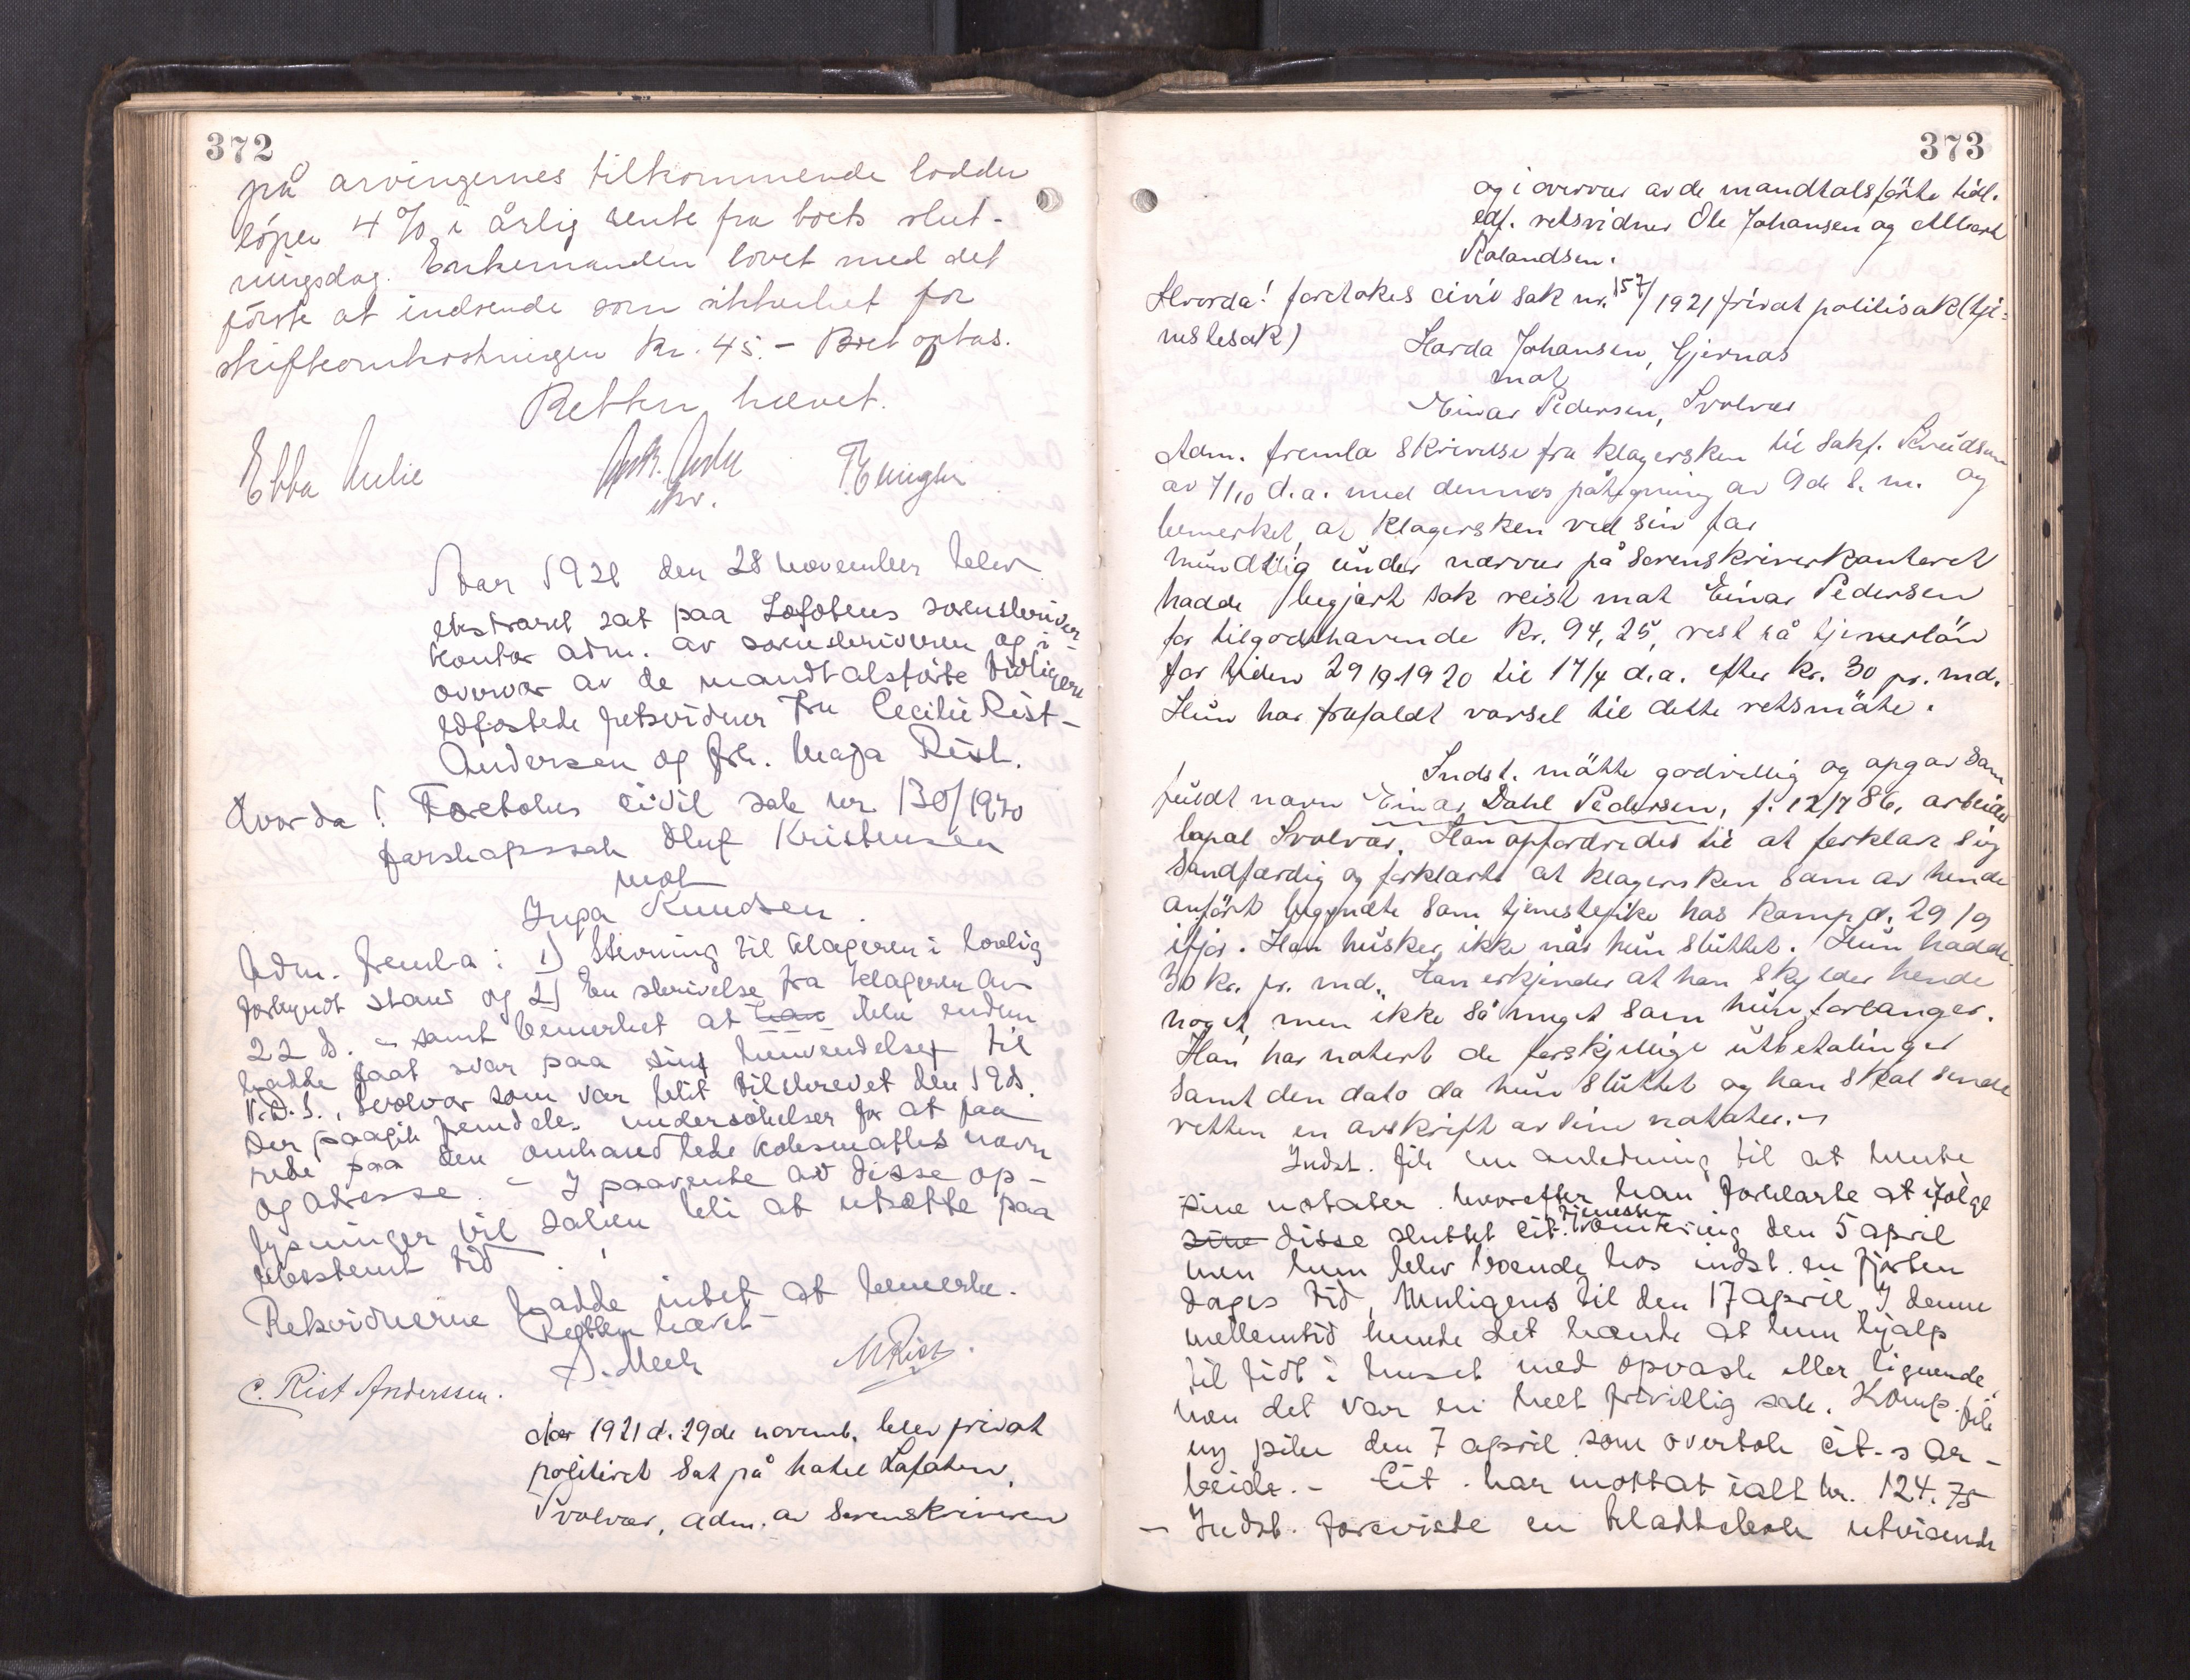 372
på arvingernes tilkommende lodder
löper 4 % i årlig rente fra boets slut-
ningsdag. Enkemanden lovet med det
förste at indsende som sikkerhet for
skifteomkostningen kr. 45.- Boet optas.
Retten hævet.
Ebba
Aar 1921 den 28 november blev
ekstraret sat paa Lofotens sorenskriver-
kontor adm. av sorenskriveren og i
overvær av de mandtalsförte tidligere
edfæstede retsvidner Fru Cecilie Rist-
Andersen og frk. Maja Rist.
Hvorda! Foretokes civil sak nr. 130/1920
farskapssak Oluf Kristensen
mot
Inga Knudsen.
Adm. fremla: 1) Stevning til klageren i lovlig
forkyndt stand og 2) En skrivelse fra klageren av
22 ds. - samt bemerket at han ikke endnu
hadde faat svar paa sin henvendelse til
V.D.S., Svolvær som var blit tilskrevet den 19ds.
Der paagik fremdeles undersökelser for at faa
rede paa den omhandlede navn
og adresse. - I paavente av disse op-
lysninger vil saken bli at utsætte paa
ubestemt tid.
Retsvidnerne hadde intet at bemerke.
Retten hævet
C. Rist Anderssen. A. Meek MRist.
Aar 1921 d. 29de novemb. blev privat
politiret sat på hotel Lofoten,
Svolvær, adm. av sorenskriveren
373
og i overvær av de mandtalsförte tidl.
edf. retsvidner Ole Johansen og Albert
Rolandsen.
Hvorda! foretokes civil sak nr. 157/1921 privat politisak (tje-
nestesak)
Harda Johansen, Gjernas
mot
Einar Pedersen, Svolvær
Adm. fremla skrivelse fra klagersken til sakf. Knudsen
av 7/10 d.a. med dennes påtegning av 9de s. m. og
bemerket, at klagersken ved sin far
mundtlig under nærvær på sorenskriverkontoret
hadde begjært sak reist mot Einar Pedersen
for tilgodehavende kr. 94,25, rest på tjenerlön
for tiden 29/9 1920 til 17/4 d.a. efter kr. 30 pr. md.
Hun har frafaldt varsel til dette retsmöte.
Indst. mötte godvillig og opgav som
fuldt navn Einar Dahl Pedersen, f. 12/7 86, arbeider
bopæl Svolvær. Han opfordredes til at forklare sig
sandfærdig og forklarte at klagersken som av hende
anfört begyndte som tjenestepike hos komp. d. 29/9
ifjor. Han husker ikke når hun sluttet. Hun hadde
30 kr. pr. md. Han erkjender at han skylder hende
noget, men ikke så meget som hun forlanger.
Han har notert de forskjellige utbetalinger
samt den dato da hun sluttet og han skal sende
retten en avskrift av sine notater.-
Indst. fik en anledning til at hente
sine notater hvorefter han forklarte at ifölge
sine disse sluttet cit. tjeneste den 5 april
men hun blev boende hos indst. en fjorten
dages tid, muligens til den 17 april. I denne
mellemtid hende det hænde at hun hjalp
til tidt i huset med opvask eller lignende,
men det var en helt frivillig sak. Komp. fik
ny pike den 7 april som overtok cit.s ar-
beide. - Cit. har mottat ialt kr. 124.75
- Indst. foreviste en utvisende